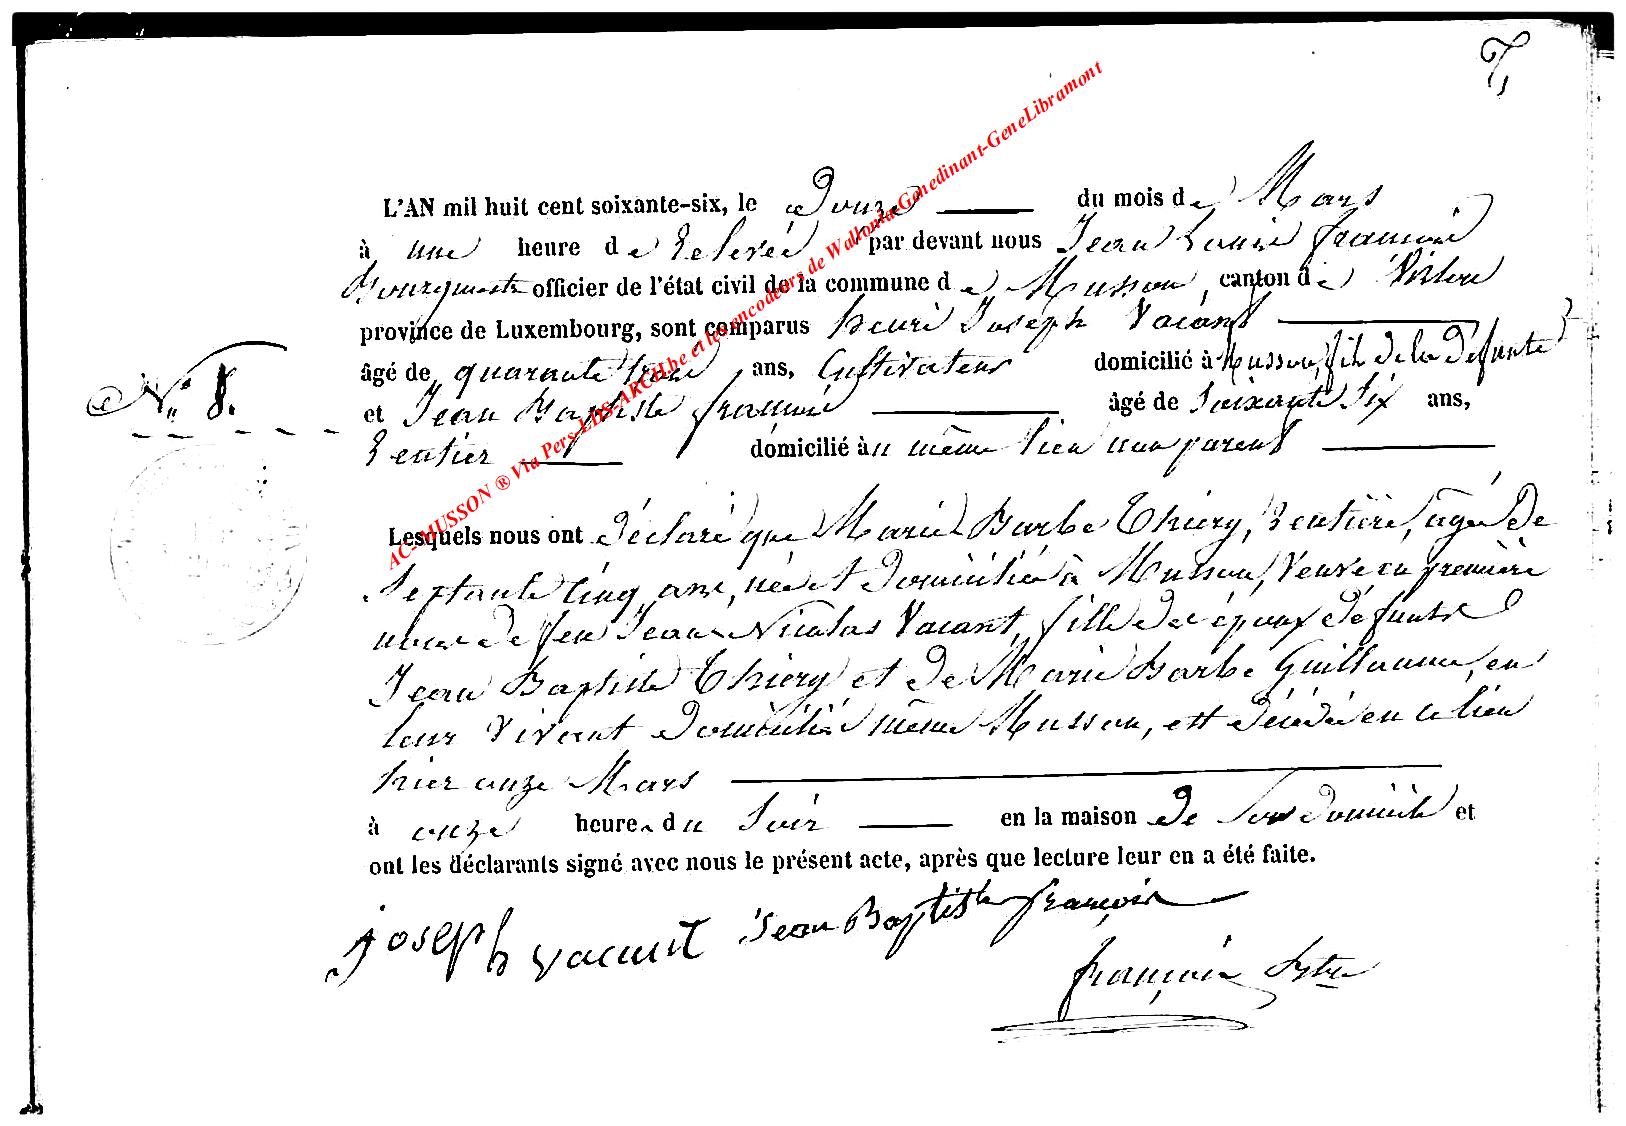 7
L'AN mil huit cent soixante-six, le Douze du mois de Mars
à une heure de relevée par devant nous Jean Louis françois
Bourgmestre officier de l'état civil de la commune de Musson, canton de Virton
province de Luxembourg, sont comparus henri Joseph Vacant
âgé de quarante trois ans, Cultivateur domicilié à Musson, fils de la défunte
N° 8.
et Jean Baptiste françois âgé de Soixante Six ans,
Rentier domicilié au même lieu non parent
Lesquels nous ont déclaré que Marie Barbe Thiery, Rentière, âgée de
Septante Cinq ans, née et domiciliée à Musson, Veuve en première
noces de feu Jean Nicolas Vacant, fille des époux défunts
Jean Baptiste Thiery et de Marie Barbe Guillaume, en
leur Vivant domiciliés même Musson, est décédée en ce lieu
hier onze Mars
à onze heures du Soir en la maison de Son domicile et
ont les déclarants signé avec nous le présent acte, après que lecture leur en a été faite.
joseph vacant Jean Baptiste françois
françois
AC-MUSSON ® Via Pers-LDS-ARCH.be et les encodeurs de Wallonia-Genedinant-GeneLibramont